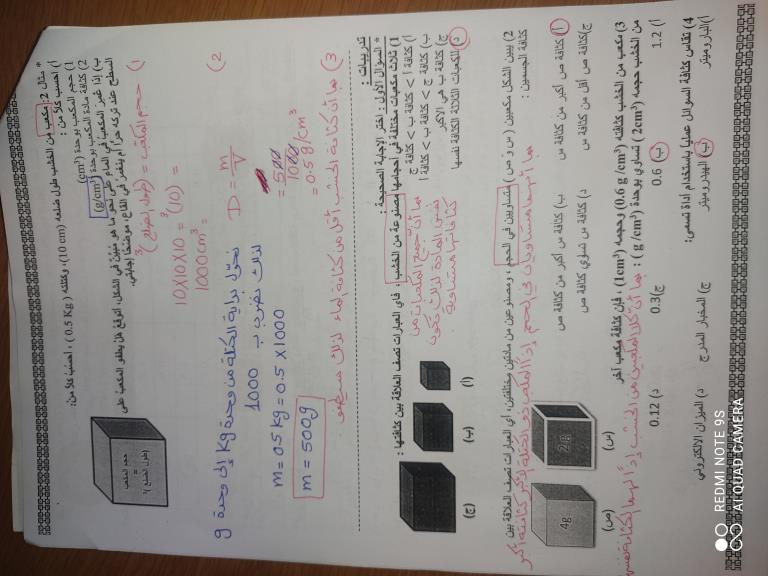 * مثال 2: مكعب من الخشب طول ضلعه (10 cm)، وكتلته (0.5 Kg)، احسب كلاً من:
أ) احسب كلاً من :
1) حجم المكعب بوحدة (cm³)
2) كثافة مادة المكعب بوحدة (g/cm³)
ب) إذا غمر المكعب في الماء على نحو ما هو مبين في الشكل، أتوقع هل يطفو المكعب على
السطح عند تركه حراً أم ينغمر في القاع، موضحًا إجابتي.
حجم المكعب
=
(طول الضلع)³
1) حجم المكعب = (طول الضلع)³
10x10x10 = ³(10) =
1000 cm³ =
2)
D = m/V
= 500/1000
= 0.5 g/cm³
نحوّل بداية الكتلة من وحدة Kg إلى وحدة g
لذلك نضرب ب 1000
m = 0.5 Kg = 0.5 x 1000
m = 500g
3) بما أن كثافة الخشب أقل من كثافة الماء لذلك سيطفو
تدريبات :
* السؤال الأول : اختر الإجابة الصحيحة :
1) ثلاث مكعبات مختلفة في أحجامها مصنوعة من الخشب، فأي العبارات تصف العلاقة بين كثافتها :
أ) كثافة أ > كثافة ب > كثافة ج
ب) كثافة ج > كثافة ب > كثافة أ
ج) كثافة ب هي الأكبر
د) المكعبات الثلاثة الكثافة نفسها
بما أن جميع المكعبات من
نفس المادة لذلك تكون
كثافاتها متساوية
(أ)
(ب)
(ج)
2) يبين الشكل مكعبين (س و ص) متساويين في الحجم، ومصنوعين من مادتين مختلفتين، أي العبارات تصف العلاقة بين
كثافة الجسمين :
بما أنهما متساويان في الحجم إذاً المكعب ذو الكتلة الأكبر كثافته أكبر
أ) كثافة ص أكبر من كثافة س
ب) كثافة س أكبر من كثافة ص
ج) كثافة ص أقل من كثافة س
د) كثافة س تساوي كثافة ص
2g
4g
(س)
(ص)
3) مكعب من الخشب كثافته (0.6 g /cm³) وحجمه (1cm³)، فإن كثافة مكعب آخر
من الخشب حجمه (2cm³) تساوي بوحدة (g /cm³) :
بما أن كلا المكعبين من الخشب إذاً لهما الكثافة نفسها
أ) 1.2
ب) 0.6
ج) 0.3
د) 0.12
4) تقاس كثافة السوائل عملياً باستخدام أداة تسمى:
أ) البارومیتر
ب) الهيدروميتر
ج) المخبار المدرج
د) الميزان الالكتروني
REDMI NOTE 9S
AI QUAD CAMERA